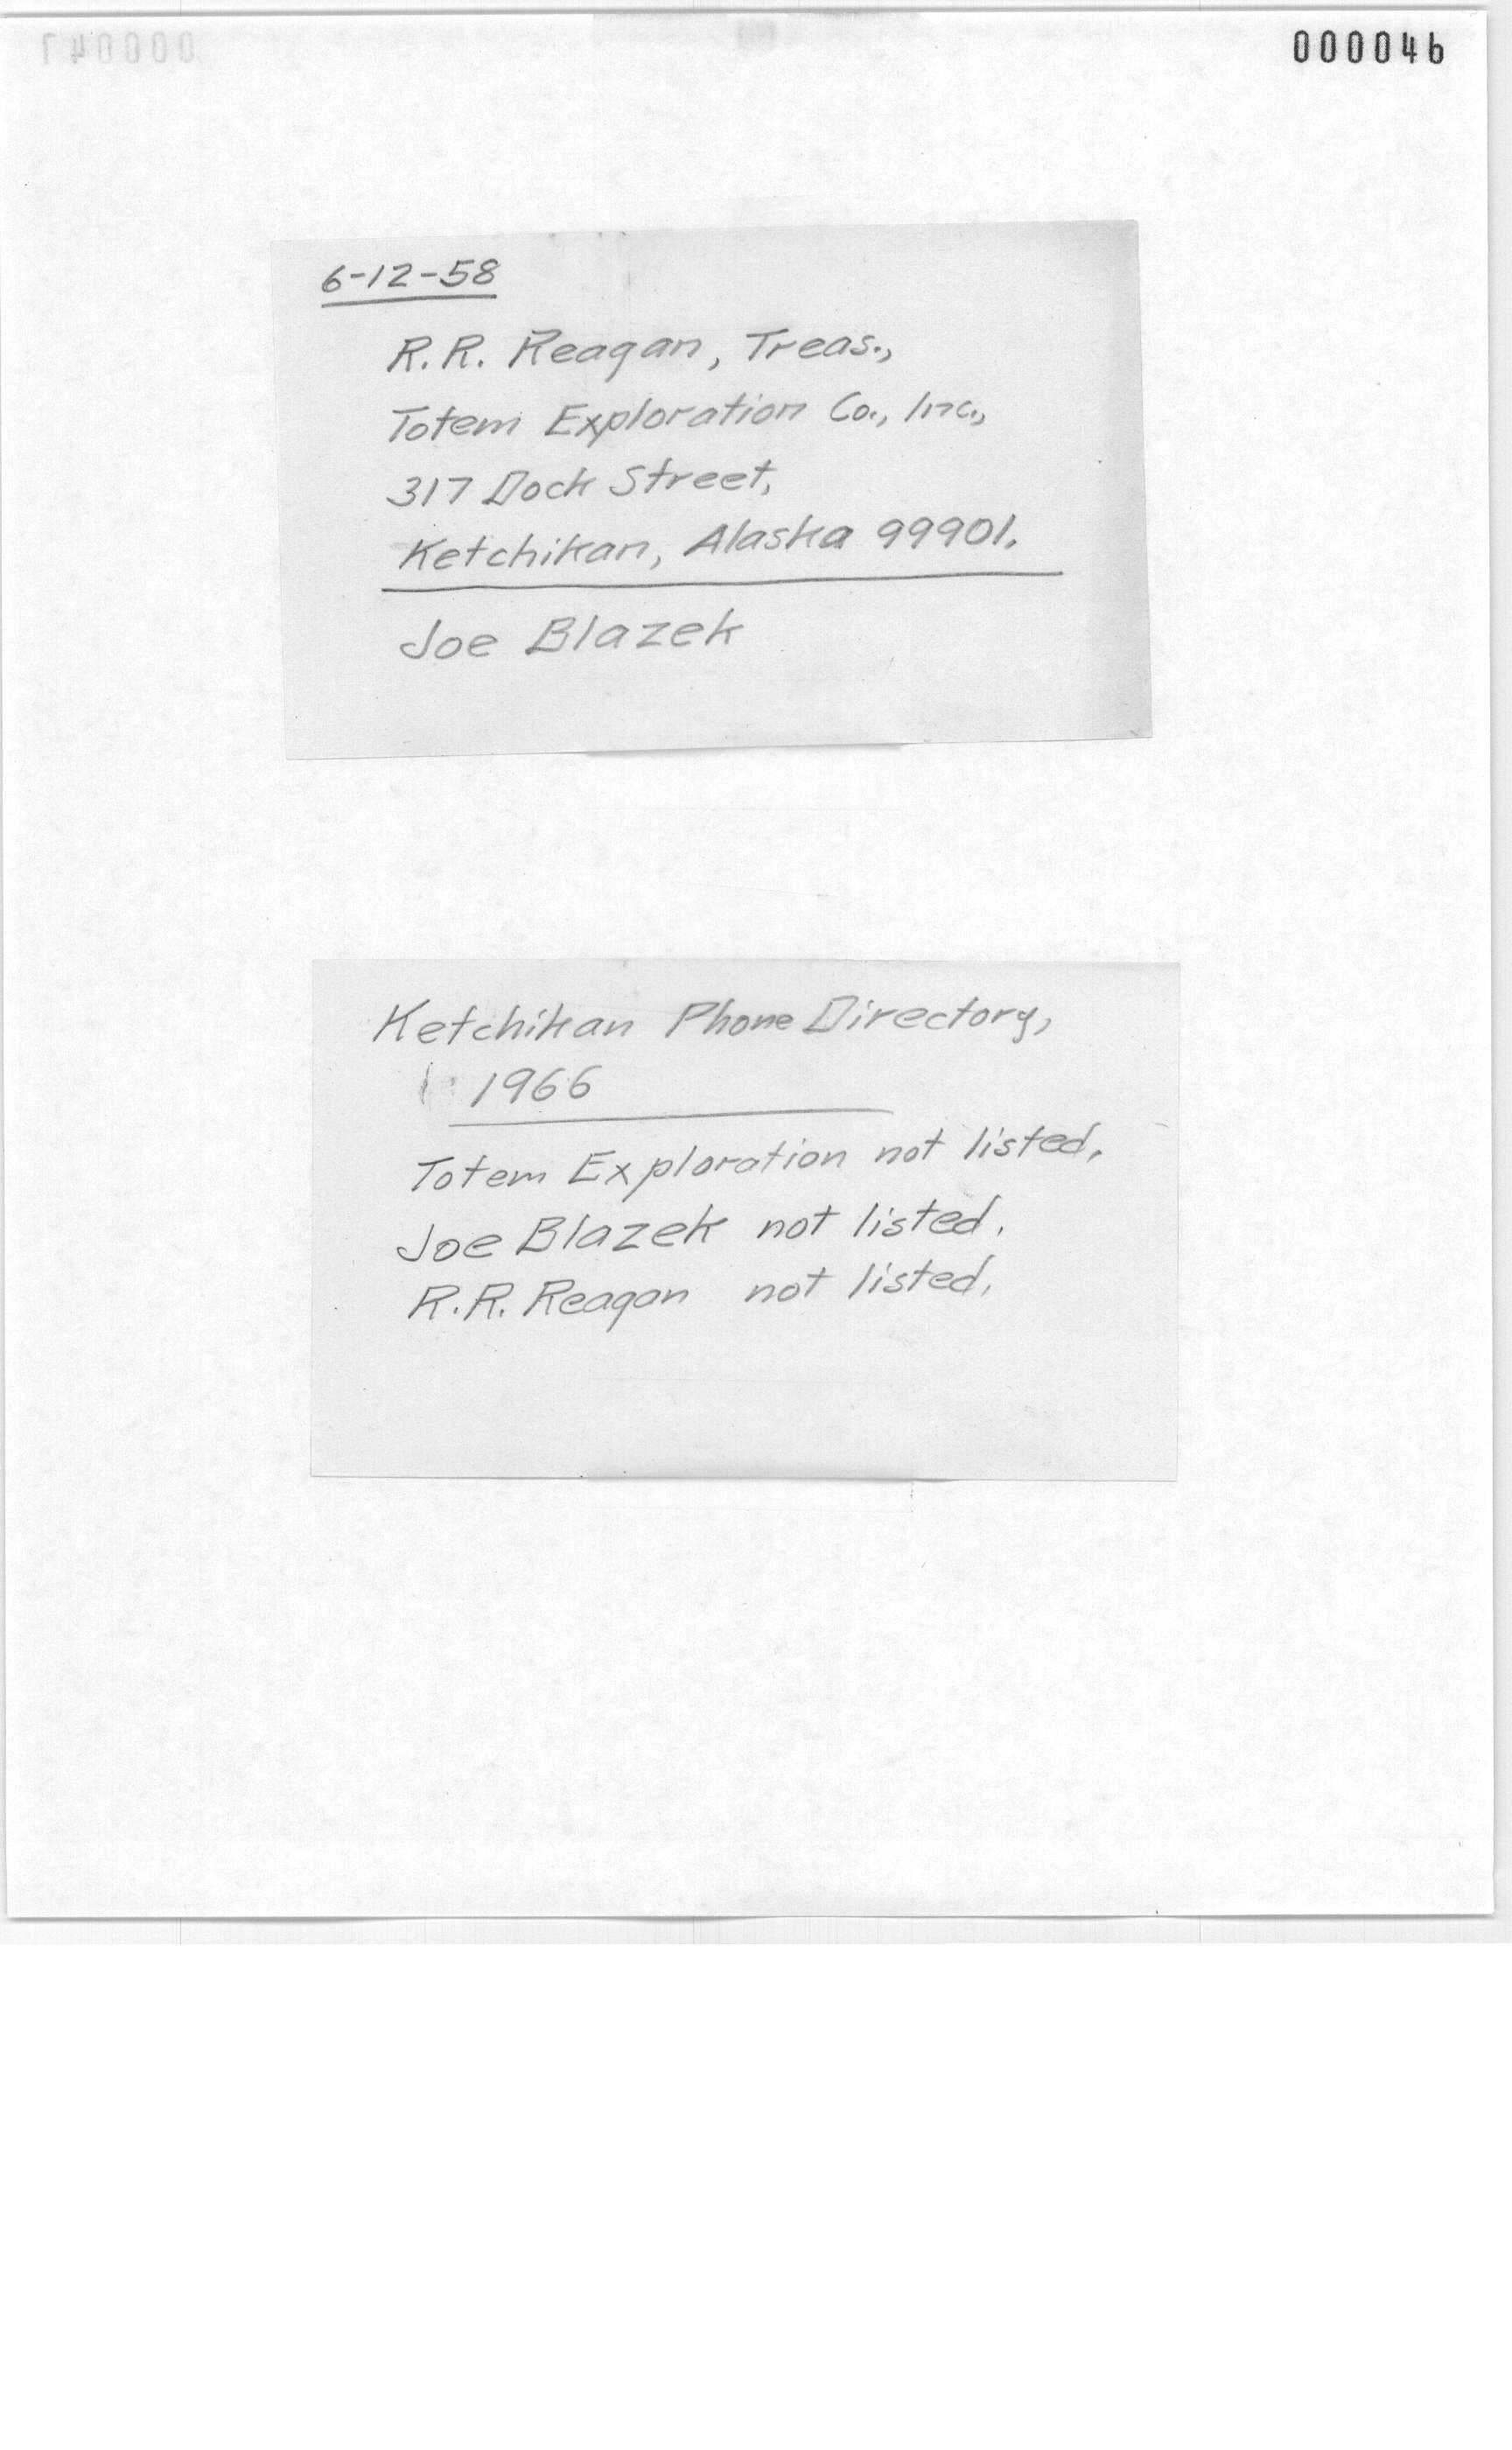 000046
6-12-58
R.R. Reagan, Treas.,
Totem Exploration Co., Inc.,
317 Dock Street,
Ketchikan, Alaska 99901.
Joe Blazek
Ketchikan Phone Directory,
1966
Totem Exploration not listed.
Joe Blazek not listed.
R.R. Reagan not listed.